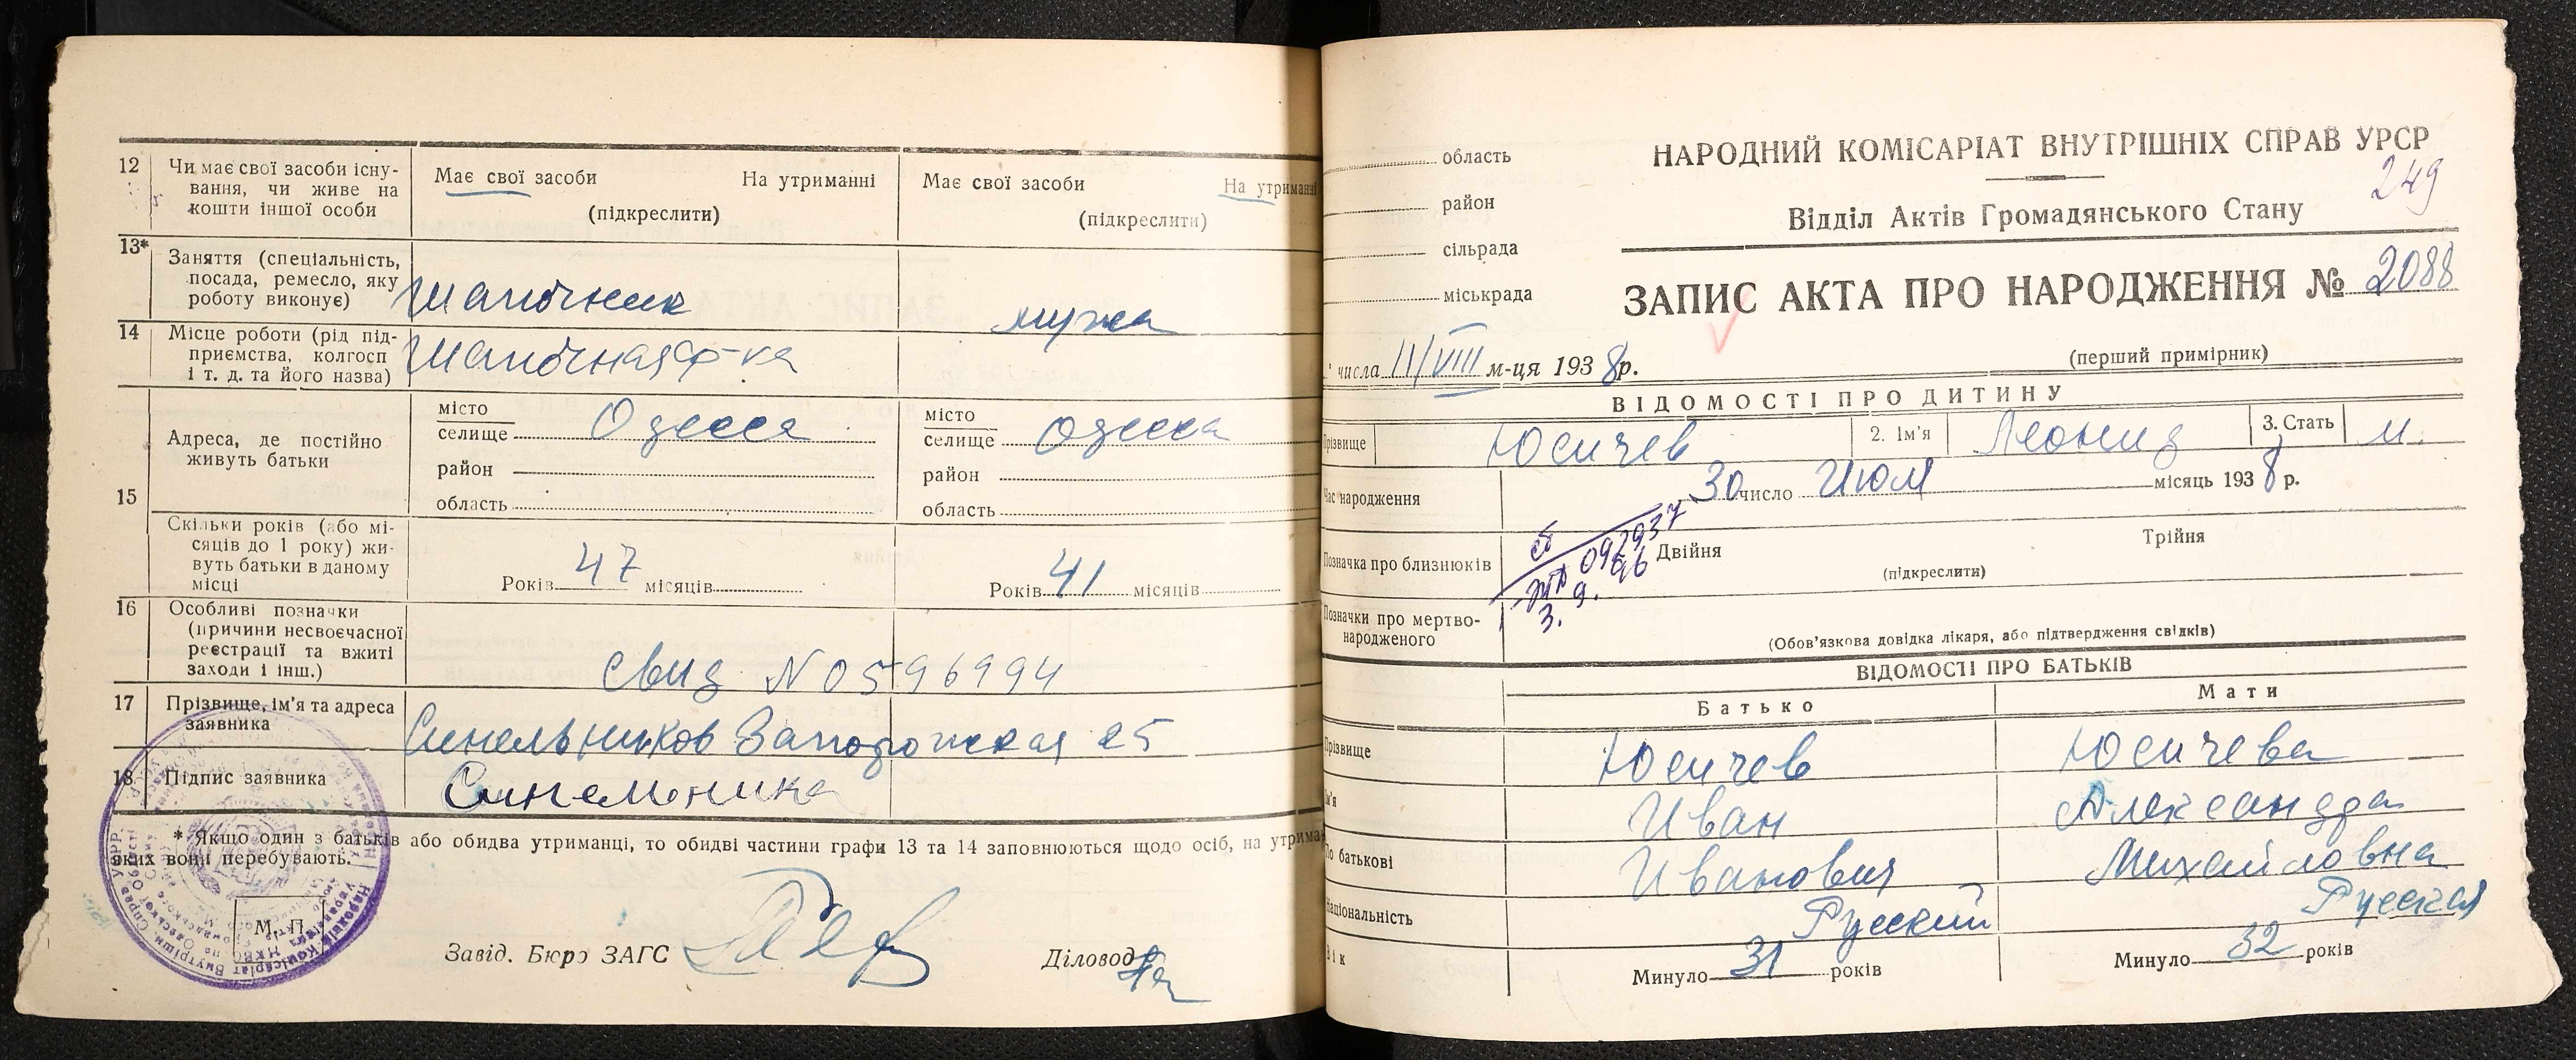 12 Чи має свої засоби існу-
вання, чи живе на
кошти іншої особи
Має свої засоби На утриманні
(підкреслити)
Має свої засоби На утриманні
(підкреслити)
13* Заняття (спеціальність,
посада, ремесло, яку
роботу виконує)
Шапочник
мужа
14 Місце роботи (рід під-
приємства, колгосп
і т. д. та його назва)
Шапочная ф-ка
15 Адреса, де постійно
живуть батьки
місто
селище Одесса
район
область
місто
селище Одесса
район
область
Скільки років (або мі-
сяців до 1 року) жи-
вуть батьки в даному
місці
Років 47 місяців
Років 41 місяців
16 Особливі позначки
(причини несвоєчасної
реєстрації та вжиті
заходи і інш.)
Свид N 0596994
17 Прізвище, ім'я та адреса
заявника
Синельников Запорожская 25
18 Підпис заявника
* Якщо один з батьків або обидва утриманці, то обидві частини графи 13 та 14 заповнюються щодо осіб, на утрима
яких вони перебувають.
М. П.
Завід. Бюро ЗАГС
Діловод
область
район
сільрада
міськрада
НАРОДНИЙ КОМІСАРІАТ ВНУТРІШНІХ СПРАВ УРСР
249
Відділ Актів Громадянського Стану
ЗАПИС АКТА ПРО НАРОДЖЕННЯ № 2088
числа 11/VIII м-ця 1938 р.
(перший примірник)
ВІДОМОСТІ ПРО ДИТИНУ
Прізвище Юсичев 2. Ім'я Леонид 3. Стать м.
Час народження 30 число Июля місяць 1938 р.
Позначка про близнюків Двійня Трійня
(підкреслити)
Позначки про мертво-
народженого
(Обов'язкова довідка лікаря, або підтвердження свідків)
ВІДОМОСТІ ПРО БАТЬКІВ
Батько Мати
Прізвище Юсичев Юсичева
Ім'я Иван Александра
По батькові Иванович Михайловна
Національність Русский Русская
Вік Минуло 31 років Минуло 32 років